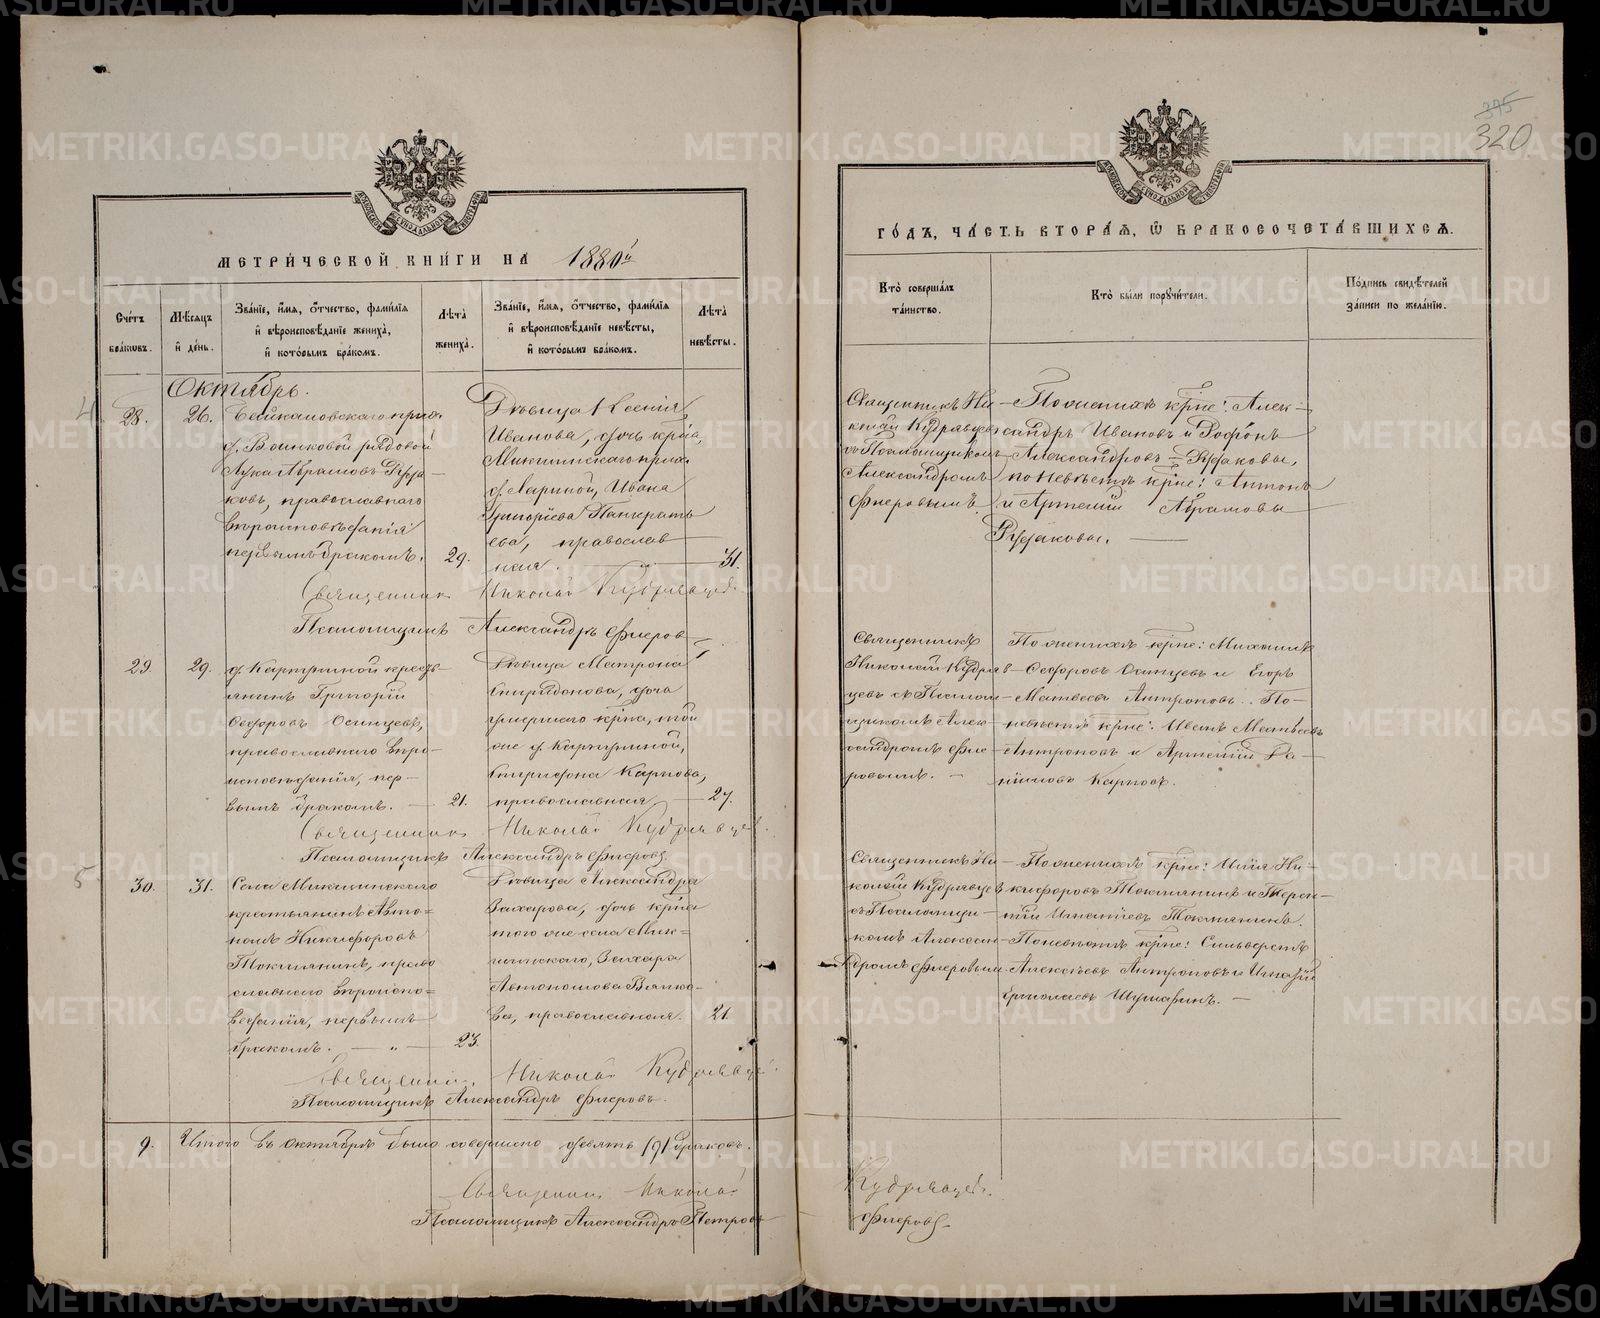 375
320
МЕТРИ́ЧЕСКОЙ КНИ́ГИ НА 1880й
ГО́ДЪ, ЧА́СТЬ ВТОРА́Я, Ѽ БРАКОСОЧЕТА́ВШИХСЯ.
Сче́тъ бра́ковъ.
Мѣ́сяцъ и де́нь.
Зва́нїе, и́мя, ѻ́тчество, фами́лїя
и вѣроисповѣ́данїе жениха̀,
и кото́рымъ бра́комъ.
Лѣ́та жениха̀.
Зва́нїе, и́мя, ѻ́тчество, фами́лїя
и вѣроисповѣ́данїе невѣ́сты,
и кото́рымъ бра́комъ.
Лѣ́та невѣ́сты.
Кто̀ соверша́лъ
та́инство.
Кто̀ бы́ли поручи́тели.
По́дпись свидѣ́телей
за́писи по жела́нїю.
Октябрь.
28.
26.
д. Воинковой рядовой
Лука Абрамовъ
ковъ, православнаго
вѣроисповѣданія
первымъ бракомъ.
29.
Дѣвица Ксенія
Иванова, дочь кр-на,
Микшинскаго прих.
д. Лариной, Ивана
Григорьева Панкрать
ева, православ
ная.
31.
Священникъ Ни
колай Кудрявцевъ
съ Псаломщикомъ
Александромъ
Флеровымъ.
По женихѣ кр-не: Алек-
сандръ Ивановъ и
Александровъ
по невѣстѣ кр-не: Антонъ
и Артемій Абрамовы
Священникъ Николай Кудрявцевъ
Псаломщикъ Александръ Флеровъ
29.
29.
д. Картузиной кресть-
янинъ Григорій
Ѳедоровъ Осинцевъ,
православнаго вѣро-
исповѣданія, пер-
вымъ бракомъ.
21.
Дѣвица Матрона
Спиридонова, дочь
умершаго кр-на, той
же д. Картузиной,
Спиридона Карпова,
православная.
27.
Священникъ
Николай Кудряв-
цевъ съ Псалом-
щикомъ Алек-
сандромъ Фле-
ровымъ.
По женихѣ кр-не: Михаилъ
Ѳедоровъ Осинцевъ и Егоръ
Матвеевъ Антроповъ. По
невѣстѣ кр-не: Иванъ Матвѣевъ
Антроповъ и Артемій Да-
ниловъ Карповъ.
Священникъ Николай Кудрявцевъ
Псаломщикъ Александръ Флеровъ
5
30.
31.
Села Микшинскаго
крестьянинъ Авто=
номъ Никифоровъ
Токмянинъ, право
славнаго вѣроиспо=
веданія, первымъ
бракомъ.
23.
Дѣвица Александра
Захарова, дочь кр-на
того же села Мик=
шинскаго, Захара
Автономова Вятко-
ва, православная.
21.
Священникъ Ни
колай Кудрявцевъ
съ Псаломщи-
комъ Алексан-
дромъ Флеровымъ
По женихѣ кр-не: Илія Ни-
кифоровъ Токмянинъ и Терен-
тій Игнатіевъ Токмянинъ.
По невѣстѣ кр-не: Сильверстъ
Алексѣевъ Антроповъ и Игнатій
Ермолаевъ
Священникъ Николай Кудрявцевъ
Псаломщикъ Александръ Флеровъ.
9. Итого въ октябрѣ было совершено девять /9/ браковъ.
Священникъ Николай Кудрявцевъ.
Псаломщикъ Александръ Петровъ Флеровъ.
METRIKI.GASO-URAL.RU